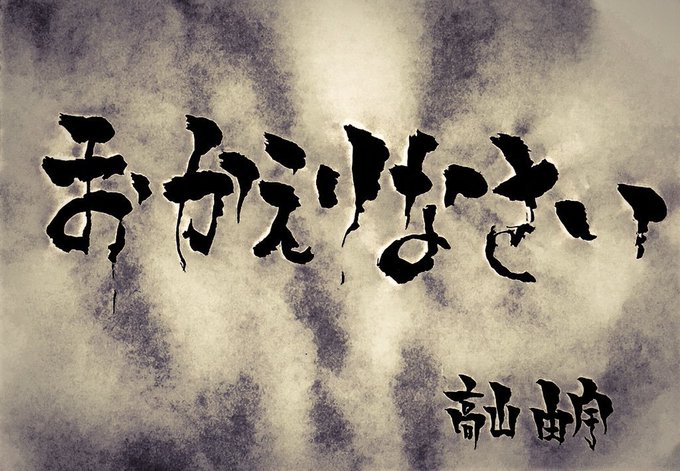 おかえりなさい
高山由宇